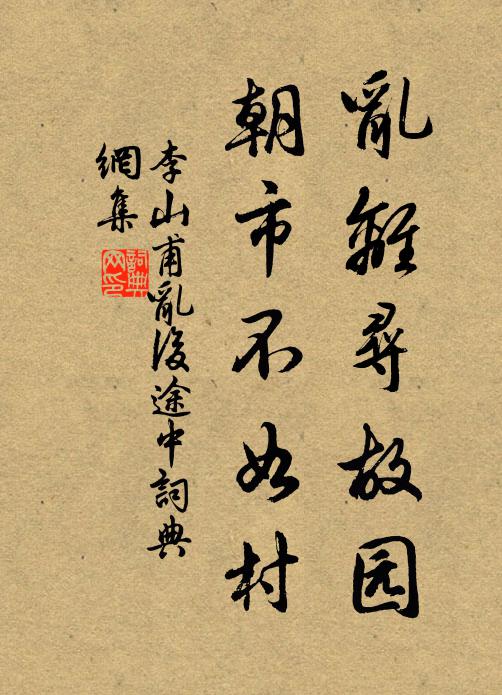 亂離尋故园
朝市不如村
李山甫亂後途中詞典
網集
詞典网印